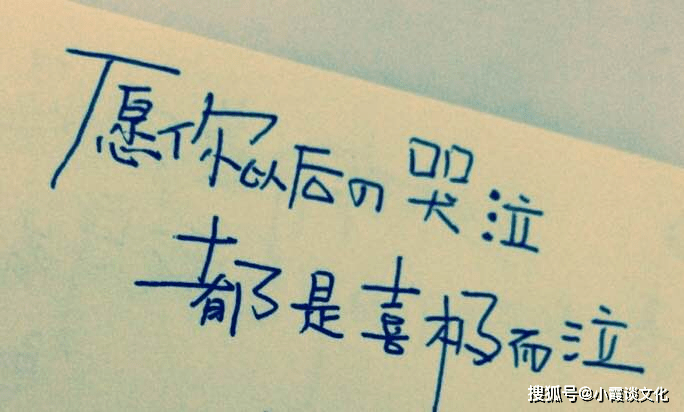 愿你以后の哭泣
都是喜极而泣
搜狐号@小霞谈文化